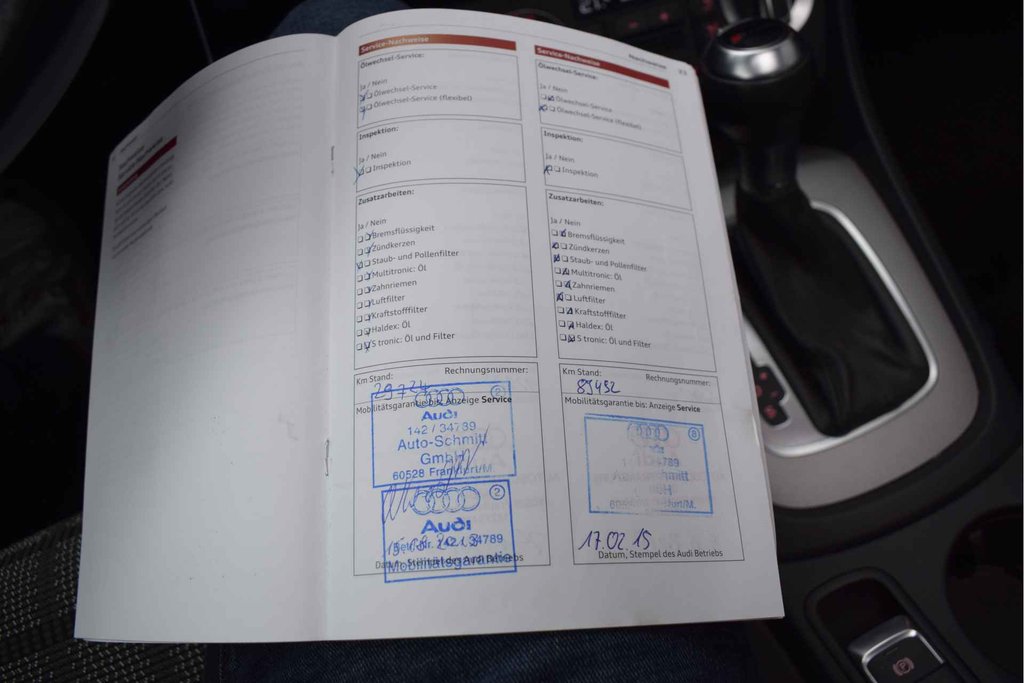 Service-Nachweise
Ölwechsel-Service:
Ja / Nein
Ölwechsel-Service
Ölwechsel-Service (flexibel)
Inspektion:
Ja / Nein
Inspektion
Zusatzarbeiten:
Ja / Nein
Bremsflüssigkeit
Zündkerzen
Staub- und Pollenfilter
Multitronic: Öl
Zahnriemen
Luftfilter
Kraftstofffilter
Haldex: Öl
S tronic: Öl und Filter
Km Stand:
Rechnungsnummer:
29724
Mobilitätsgarantie bis: Anzeige Service
2
Audi
142 / 34789
Auto-Schmitt
GmbH
60528 Frankfurt/M.
2
Audi
Betr.-Nr. 142 / 34789
Mobilitätsgarantie
Datum, Stempel des Audi Betriebs
Nachweise
Service-Nachweise
Ölwechsel-Service:
Ja / Nein
Ölwechsel-Service
Ölwechsel-Service (flexibel)
Inspektion:
Ja / Nein
Inspektion
Zusatzarbeiten:
Ja / Nein
Bremsflüssigkeit
Zündkerzen
Staub- und Pollenfilter
Multitronic: Öl
Zahnriemen
Luftfilter
Kraftstofffilter
Haldex: Öl
S tronic: Öl und Filter
Km Stand:
Rechnungsnummer:
89452
Mobilitätsgarantie bis: Anzeige Service
8
17.02.15
Datum, Stempel des Audi Betriebs